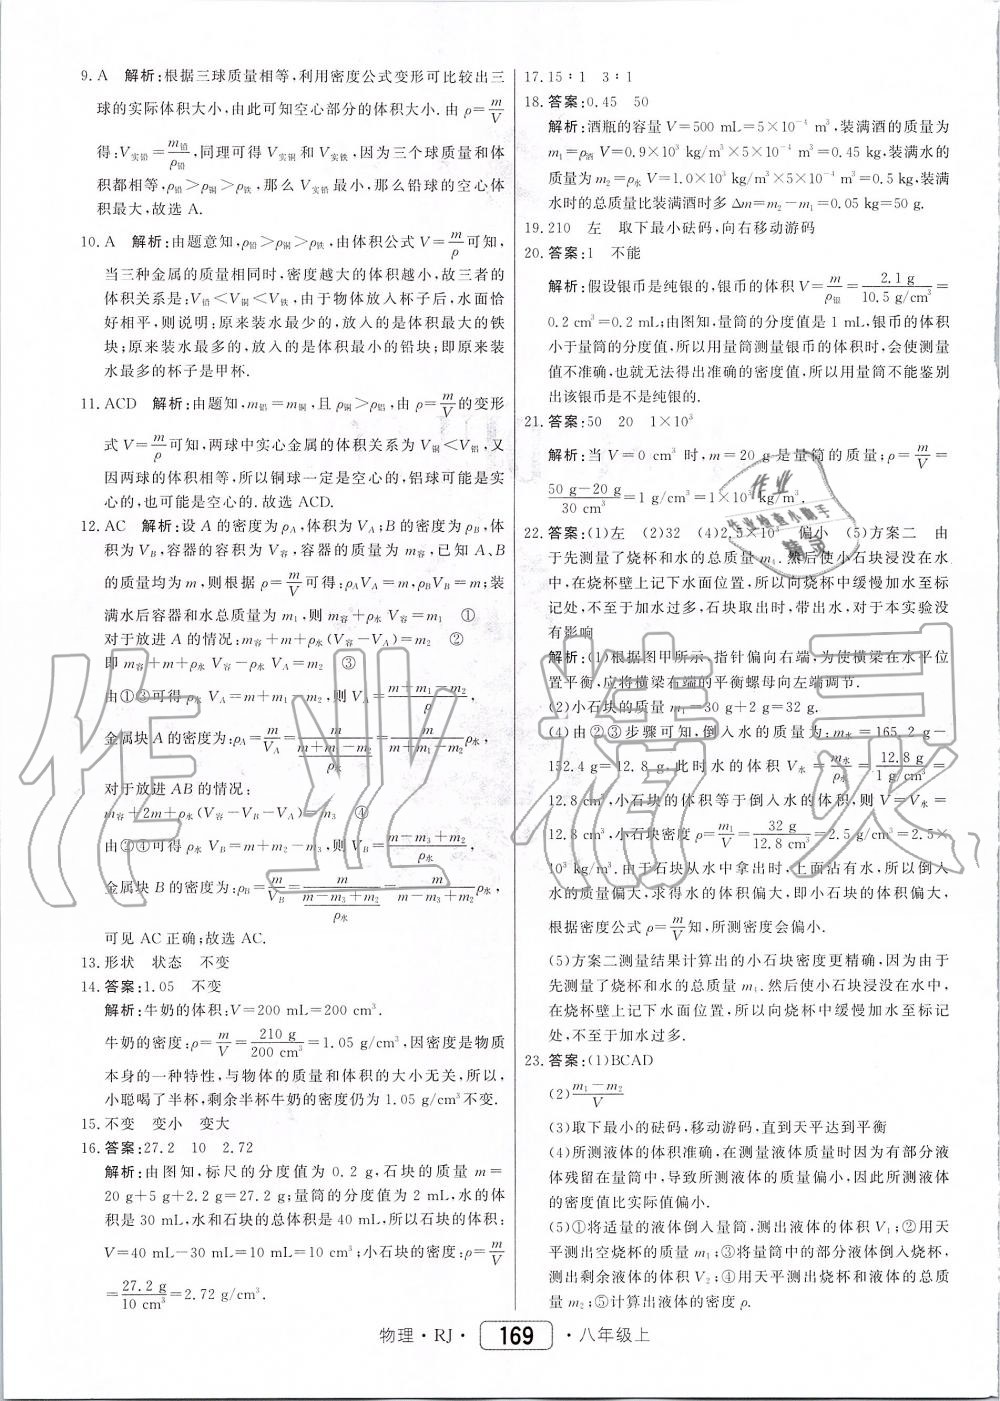 9. A 解析:根据三球质量相等,利用密度公式变形可比较出三
球的实际体积大小,由此可知空心部分的体积大小. 由 ρ=m/V
得:V实铅=m铅/ρ铅,同理可得 V实铜 和 V实铁,因为三个球质量和体
积都相等,ρ铅>ρ铜>ρ铁,那么 V实铅 最小,那么铅球的空心体
积最大,故选 A.
10. A 解析:由题意知,ρ铅>ρ铜>ρ铁,由体积公式 V=m/ρ可知,
当三种金属的质量相同时,密度越大的体积越小,故三者的
体积关系是:V铅<V铜<V铁,由于物体放入杯子后,水面恰
好相平,则说明:原来装水最少的,放入的是体积最大的铁
块;原来装水最多的,放入的是体积最小的铅块;即原来装
水最多的杯子是甲杯.
11. ACD 解析:由题知,m铝=m铜,且 ρ铜>ρ铝,由 ρ=m/V的变形
式 V=m/ρ可知,两球中实心金属的体积关系为 V铜<V铝,又
因两球的体积相等,所以铜球一定是空心的,铝球可能是实
心的,也可能是空心的. 故选 ACD.
12. AC 解析:设 A 的密度为 ρA,体积为 VA;B 的密度为 ρB,体
积为 VB,容器的容积为 V,容器的质量为 m容,已知 A、B
的质量均为 m,则根据 ρ=m/V可得:ρAVA=m,ρBVB=m;装
满水后容器和水总质量为 m1,则 m容+ρ水 V=m1 ①
对于放进 A 的情况:m容+m+ρ水(V-VA)=m2 ②
即 m容+m+ρ水 V-ρ水 VA=m2 ③
由①③可得 ρ水 VA=m+m1-m2,则 VA=(m+m1-m2)/ρ,
金属块 A 的密度为:ρA=m/VA=m/((m+m1-m2)/ρ水)=m/(m+m1-m2)ρ水,
对于放进 AB 的情况:
m容+2m+ρ水(V-VB-VA)=m3 ④
由②④可得 ρ水 VB=m+m2-m3,则 VB=(m-m3+m2)/ρ水,
金属块 B 的密度为:ρB=m/VB=m/((m-m3+m2)/ρ水)=m/(m-m3+m2)ρ水,
可见 AC 正确;故选 AC.
13. 形状 状态 不变
14. 答案:1.05 不变
解析:牛奶的体积:V=200 mL=200 cm³
牛奶的密度:ρ=m/V=210 g/200 cm³=1.05 g/cm³,因密度是物质
本身的一种特性,与物体的质量和体积的大小无关,所以,
小聪喝了半杯,剩余半杯牛奶的密度仍为 1.05 g/cm³不变.
15. 不变 变小 变大
16. 答案:27.2 10 2.72
解析:由图知,标尺的分度值为 0.2 g,石块的质量 m=
20 g+5 g+2.2 g=27.2 g;量筒的分度值为 2 mL,水的体
积是 30 mL,水和石块的总体积是 40 mL,所以石块的体积:
V=40 mL-30 mL=10 mL=10 cm³;小石块的密度:ρ=m/V
=27.2 g/10 cm³=2.72 g/cm³.
17. 15∶1 3∶1
18. 答案:0.45 50
解析:酒瓶的容量 V=500 mL=5×10⁻⁴ m³,装满酒的质量为
m1=ρ酒 V=0.9×10³ kg/m³×5×10⁻⁴ m³=0.45 kg,装满水的
质量为 m2=ρ水 V=1.0×10³ kg/m³×5×10⁻⁴ m³=0.5 kg,装满
水时的总质量比装满酒时多 Δm=m2-m1=0.05 kg=50 g.
19. 210 左 取下最小砝码,向右移动游码
20. 答案:1 不能
解析:假设银币是纯银的,银币的体积 V=m/ρ银=2.1 g/10.5 g/cm³=
0.2 cm³=0.2 mL;由图知,量筒的分度值是 1 mL,银币的体积
小于量筒的分度值,所以用量筒测量银币的体积时,会使测量
值不准确,也就无法得出准确的密度值,所以用量筒不能鉴别
出该银币是不是纯银的.
21. 答案:50 20 1×10³
解析:当 V=0 cm³ 时,m=20 g 是量筒的质量;ρ=m/V=
(50 g-20 g)/30 cm³=1 g/cm³=1×10³ kg/m³.
22. 答案:(1)左 (2)32 (4)2.5×10³ 偏小 (5)方案二 由
于先测量了烧杯和水的总质量 m1. 然后使小石块浸没在水
中,在烧杯壁上记下水面位置,所以向烧杯中缓慢加水至标
记处,不至于加水过多,石块取出时,带出水,对于本实验没
有影响
解析:(1)根据图甲所示,指针偏向右端,为使横梁在水平位
置平衡,应将横梁右端的平衡螺母向左端调节.
(2)小石块的质量 m1=30 g+2 g=32 g.
(4)由②③步骤可知,倒入水的质量为:m水=165.2 g-
152.4 g=12.8 g. 此时水的体积 V水=m水/ρ水=12.8 g/1 g/cm³=
12.8 cm³,小石块的体积等于倒入水的体积,则 V=V水=
12.8 cm³,小石块密度 ρ=m1/V=32 g/12.8 cm³=2.5 g/cm³=2.5×
10³ kg/m³. 由于石块从水中拿出时,上面沾有水,所以倒入
水的质量偏大,求得水的体积偏大,即小石块的体积偏大,
根据密度公式 ρ=m/V知,所测密度会偏小.
(5)方案二测量结果计算出的小石块密度更精确,因为由于
先测量了烧杯和水的总质量 m1. 然后使小石块浸没在水中,
在烧杯壁上记下水面位置,所以向烧杯中缓慢加水至标记
处,不至于加水过多.
23. 答案:(1)BCAD
(2)(m1-m2)/V
(3)取下最小的砝码,移动游码,直到天平达到平衡
(4)所测液体的体积准确,在测量液体质量时因为有部分液
体残留在量筒中,导致所测液体的质量偏小,因此所测液体
的密度值比实际值偏小.
(5)①将适量的液体倒入量筒,测出液体的体积 V1;②用天
平测出空烧杯的质量 m1;③将量筒中的部分液体倒入烧杯,
测出剩余液体的体积 V2;④用天平测出烧杯和液体的总质
量 m2;⑤计算出液体的密度 ρ.
物理·RJ· 169 ·八年级上
作业精灵
作业
作业检查小助手
精灵